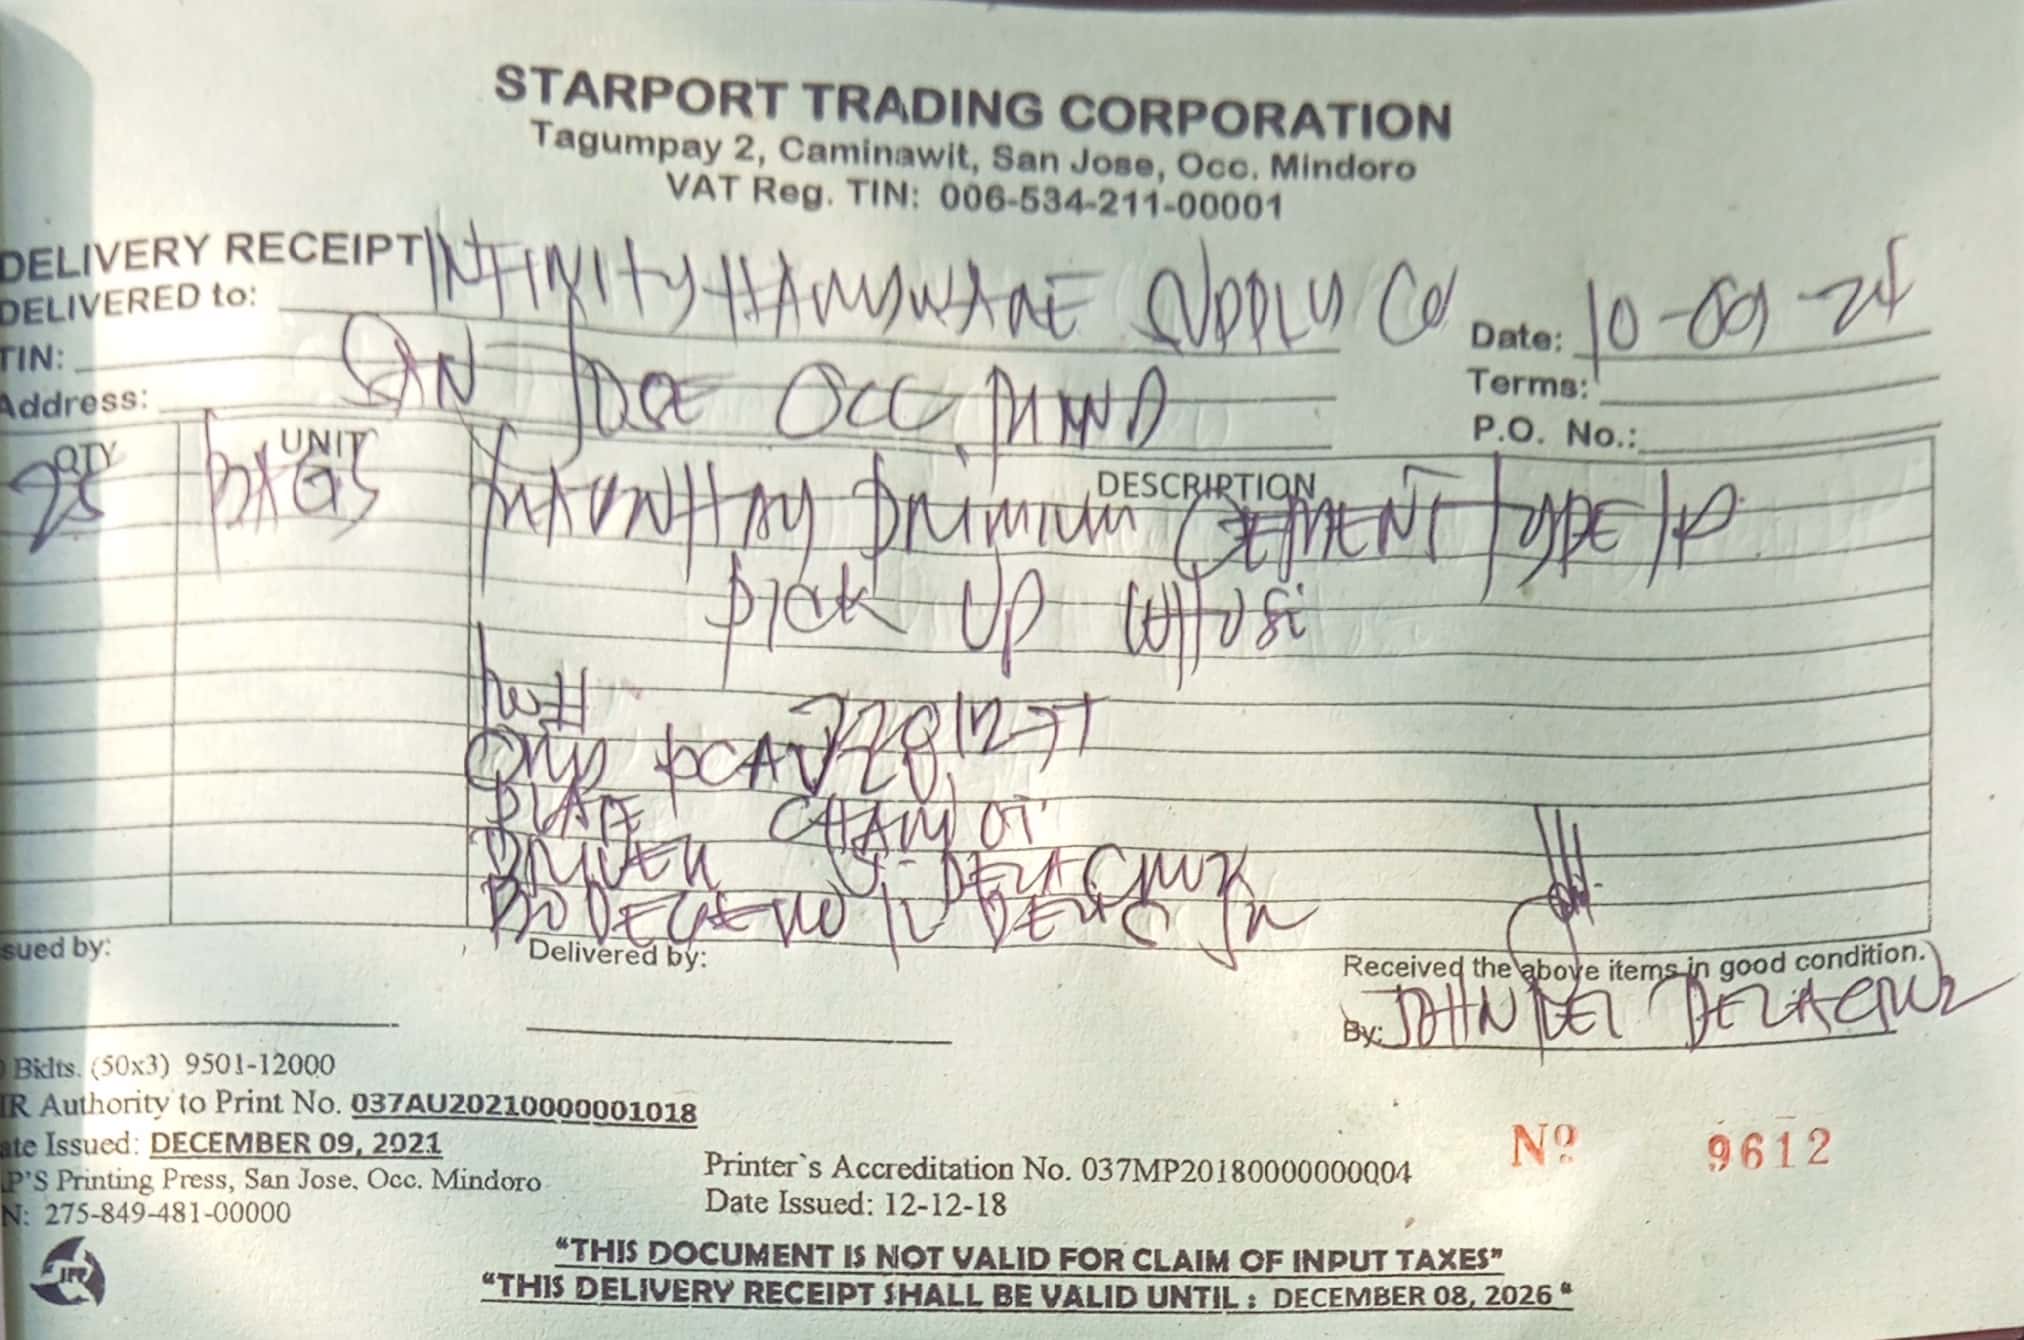 STARPORT TRADING CORPORATION
Tagumpay 2, Caminawit, San Jose, Occ. Mindoro
VAT Reg. TIN: 006-534-211-00001
DELIVERY RECEIPT
DELIVERED to: INFINITY HARDWARE SUPPLY CO
Date: 10-09-24
TIN:
Terms:
Address: SAN JOSE OCC. MIND
P.O. No.:
QTY UNIT DESCRIPTION
25 BAGS CEMENT TYPE 1P
PICK UP
PLATE
DRIVER J. DELACRUZ
BODEGERO
sued by:
Delivered by:
Received the above items in good condition.
By: JOHN DELACRUZ
Bklts. (50x3) 9501-12000
IR Authority to Print No. 037AU20210000001018
ate Issued: DECEMBER 09, 2021
P'S Printing Press, San Jose, Occ. Mindoro
N: 275-849-481-00000
Printer`s Accreditation No. 037MP20180000000004
Date Issued: 12-12-18
Nº 9612
"THIS DOCUMENT IS NOT VALID FOR CLAIM OF INPUT TAXES"
"THIS DELIVERY RECEIPT SHALL BE VALID UNTIL : DECEMBER 08, 2026 "